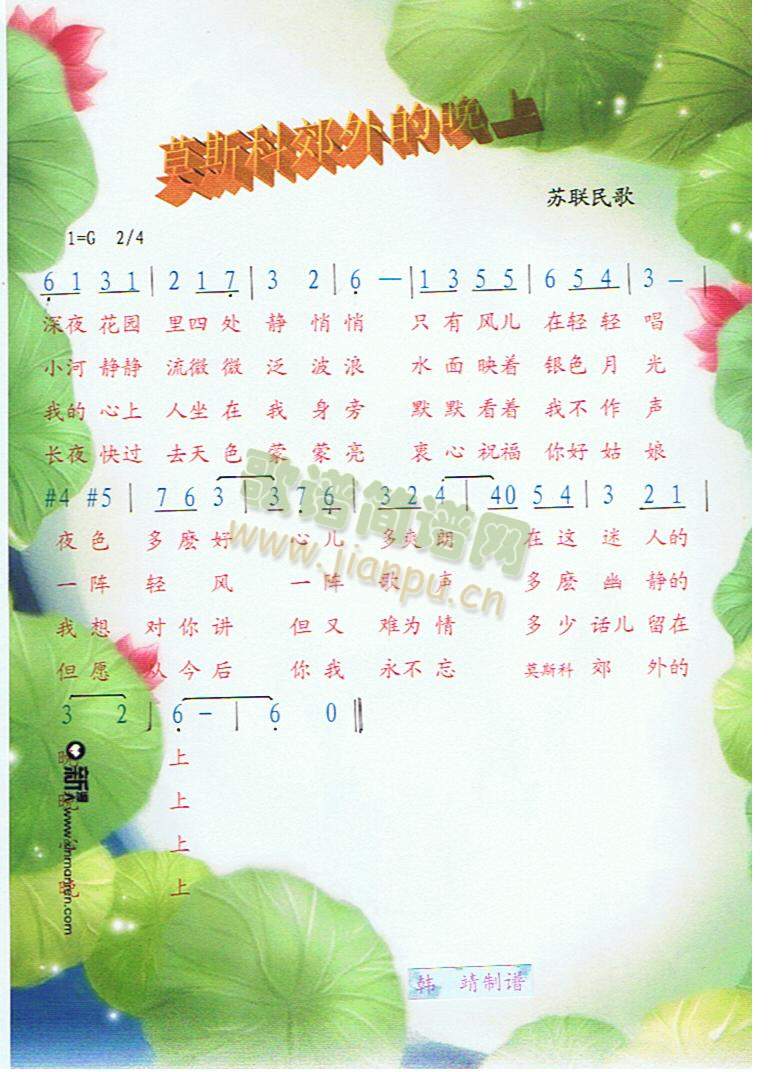 莫斯科郊外的晚上
苏联民歌
1=G 2/4
6 1 3 1 | 2 1 7 | 3 2 | 6 — | 1 3 5 5 | 6 5 4 | 3 — |
深夜 花园 里四 处 静 悄悄 只 有 风儿 在轻 轻 唱
小河 静静 流微 微 泛 波 浪 水 面 映着 银色 月 光
我的 心上 人坐 在 我 身 旁 默 默 看着 我不 作 声
长夜 快过 去天 色 蒙 蒙 亮 衷 心 祝福 你好 姑 娘
#4 #5 | 7 6 3 | 3 7 6 | 3 2 4 | 4 0 5 4 | 3 2 1 |
夜 色 多 麽 好 心 儿 多 爽 朗 在 这 迷 人的
一 阵 轻 风 一 阵 歌 声 多 麽 幽 静的
我 想 对 你 讲 但 又 难为 情 多 少 话儿 留在
但 愿 从 今 后 你 我 永不 忘 莫斯科 郊 外的
3 2 | 6 — | 6 0 ‖
上
上
上
上
歌谱简谱网
www.jianpu.cn
韩 靖制谱